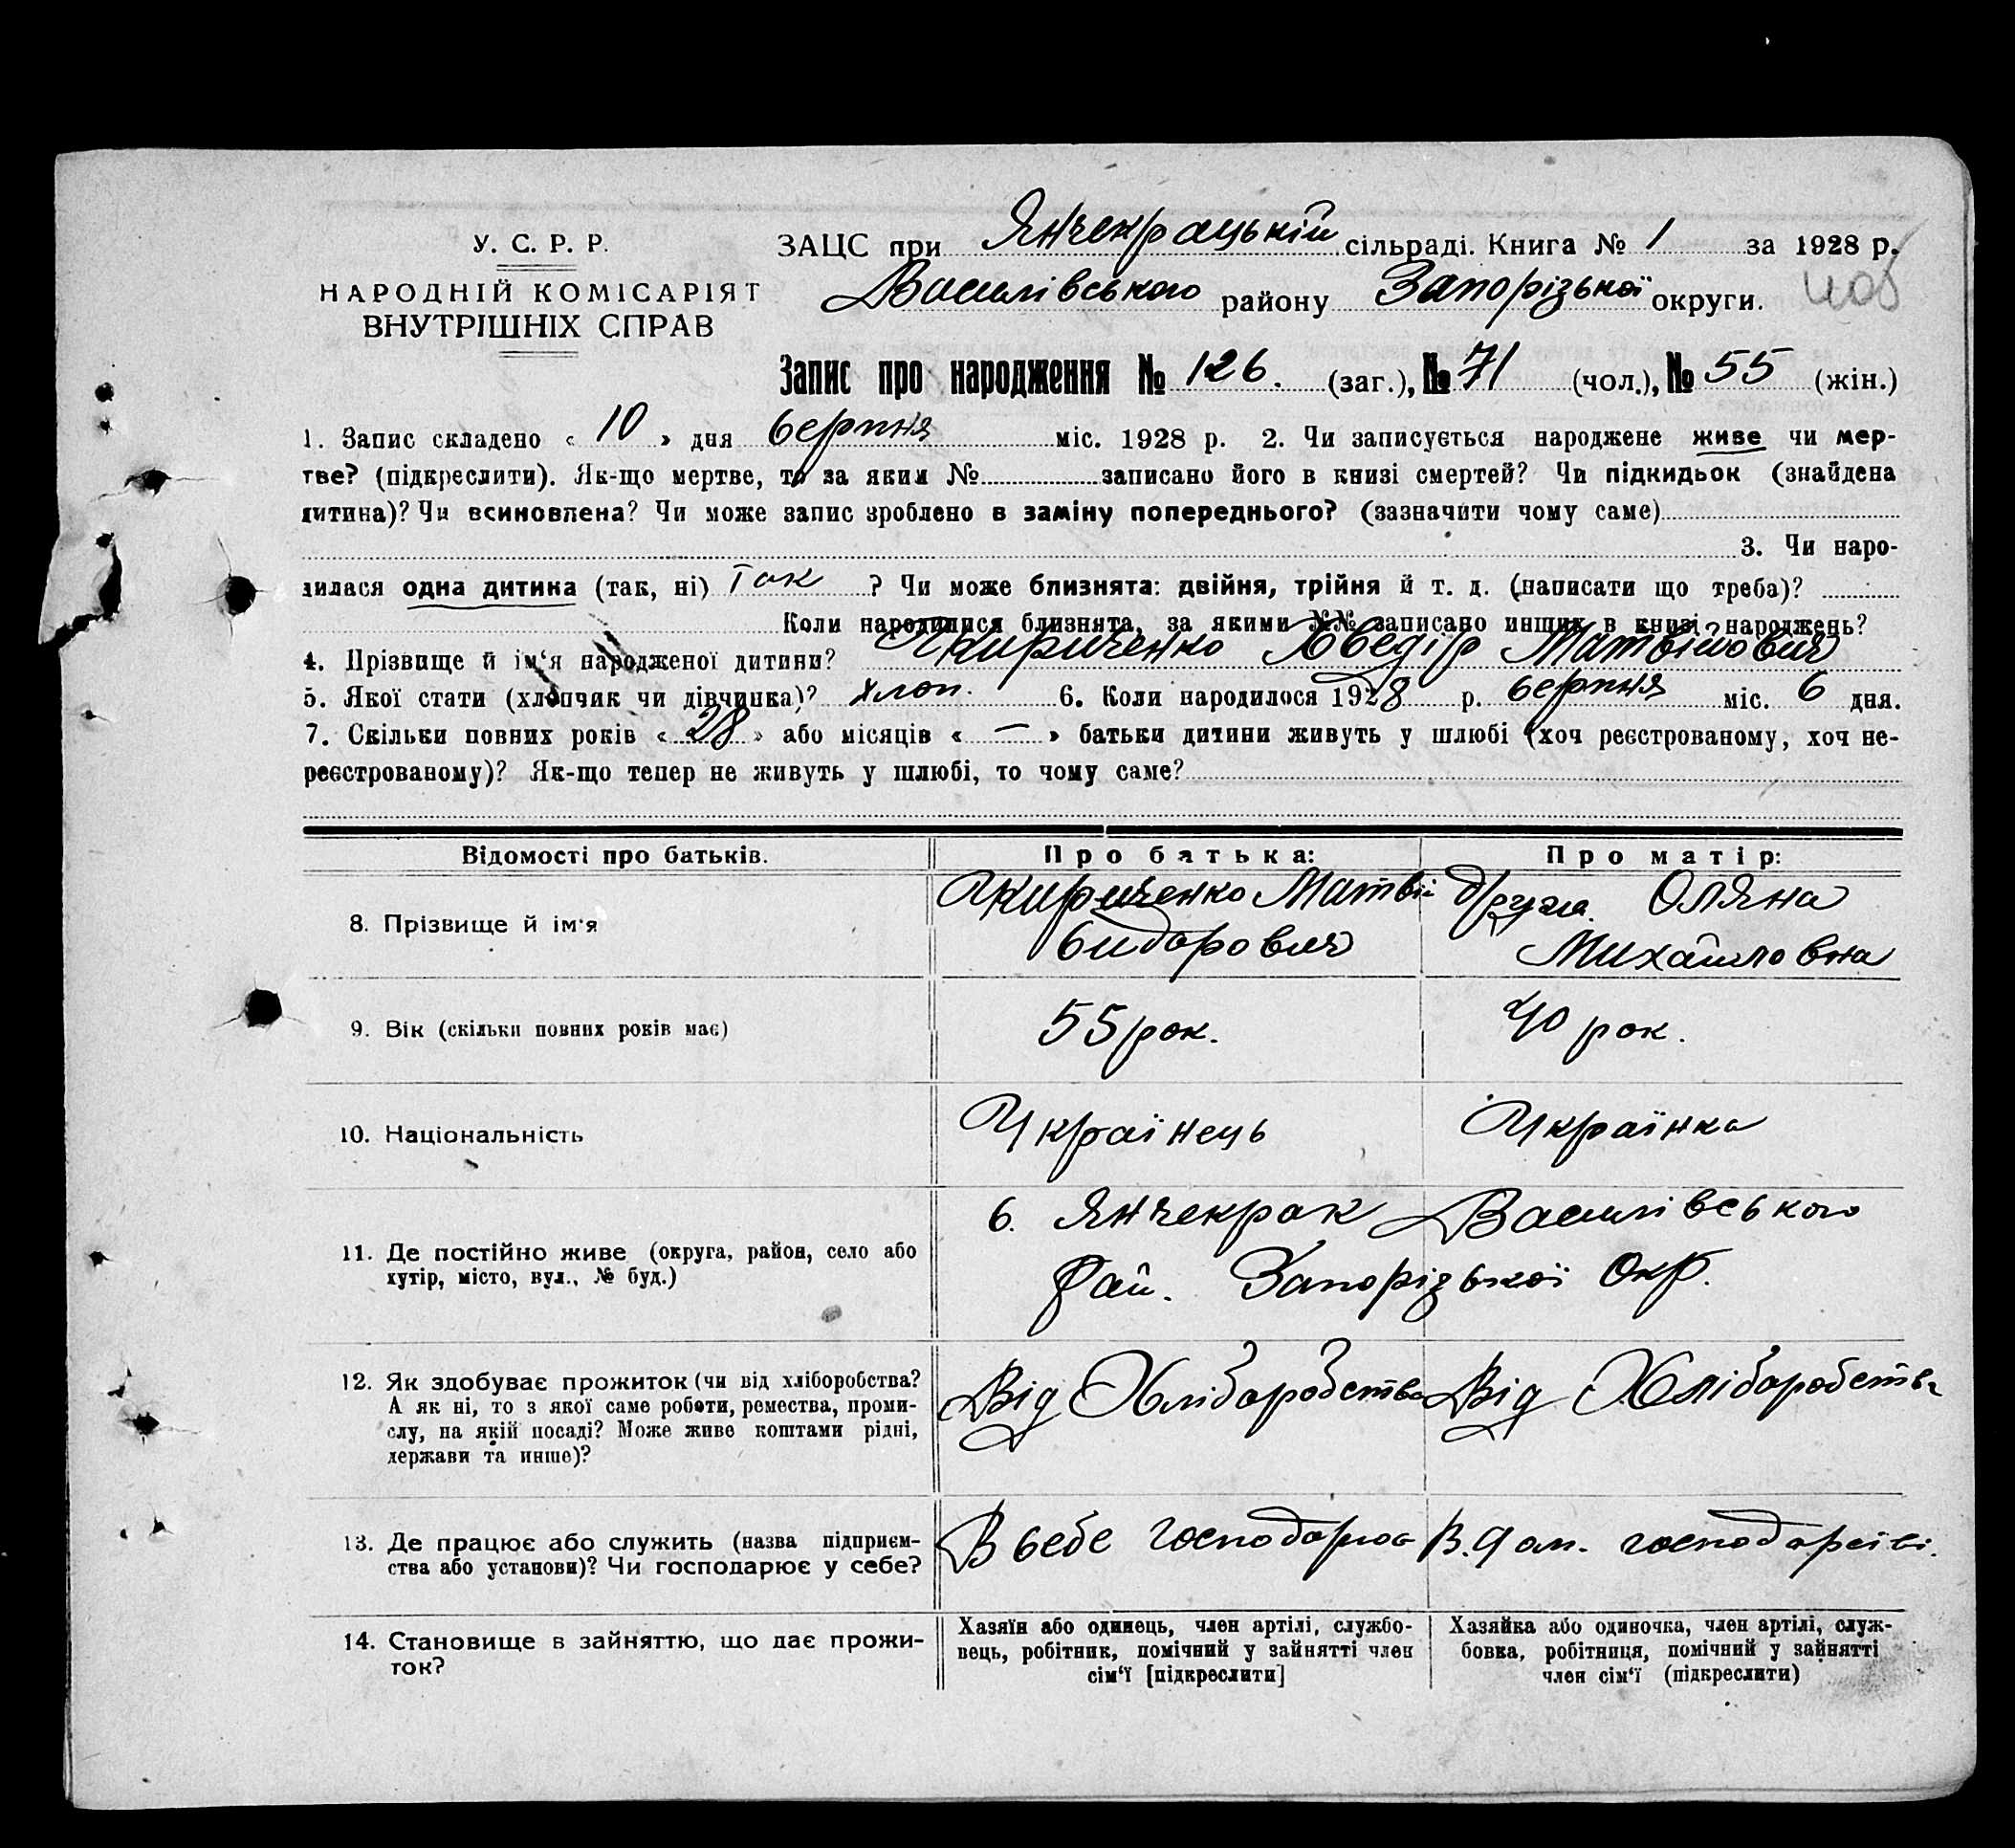 У. С. Р. Р.
НАРОДНІЙ КОМІСАРІЯТ
ВНУТРІШНІХ СПРАВ
ЗАЦС при Янчекрацькій сільраді. Книга № 1 за 1928 р.
Василівського району Запорізької округи.
Запис про народження № 126. (заг.), № 71 (чол.), № 55 (жін.)
1. Запис складено « 10 » дня серпня міс. 1928 р. 2. Чи записується народжене живе чи мер-
тве? (підкреслити). Як-що мертве, то за яким № записано його в книзі смертей? Чи підкидьок (знайдена
дитина)? Чи всиновлена? Чи може запис зроблено в заміну попереднього? (зазначити чому саме)
3. Чи наро-
дилася одна дитина (так, ні) Так ? Чи може близнята: двійня, трійня й т. д. (написати що треба)?
Коли народилися близнята, за якими №№ записано инших в книзі народжень?
4. Прізвище й ім‘я народженої дитини? Хведір Матвійович
5. Якої стати (хлопчик чи дівчинка)? хлоп. 6. Коли народилося 1928 р. серпня міс. 6 дня.
7. Скільки повних років « 28 » або місяців « — » батьки дитини живуть у шлюбі (хоч реєстрованому, хоч не-
реєстрованому)? Як-що тепер не живуть у шлюбі, то чому саме?
Відомості про батьків. Про батька: Про матір:
8. Прізвище й ім‘я Матвій Сидорович Оляна Михайловна
9. Вік (скільки повних років має) 55 рок. 40 рок.
10. Національність Українець Українка
11. Де постійно живе (округа, район, село або
хутір, місто, вул., № буд.)
с. Янчекрак Василівського
Рай. Запорізької Окр.
12. Як здобуває прожиток (чи від хліборобства?
А як ні, то з якої саме роботи, ремества, проми-
слу, на якій посаді? Може живе коштами рідні,
держави та инше)?
Від Хліборобства Від Хліборобства
13. Де працює або служить (назва підприєм-
ства або установи)? Чи господарює у себе?
В себе господарює В дом. господарсті.
14. Становище в зайняттю, що дає прожи-
ток?
Хазяїн або одинець, член артілі, службо-
вець, робітник, помічний у зайнятті член
сім‘ї [підкреслити]
Хазяйка або одиночка, член артілі, служ-
бовка, робітниця, помічний у зайнятті
член сім‘ї (підкреслити)